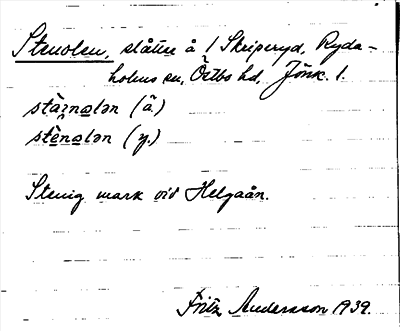 Stenolen, slåtter å 1 Skriperyd, Ryda-
holms sn, Östbo hd, Jönk. l.
stàɩnalən (ä.)
stênalən (y.)
Stenig mark vid Helgaån.
Fritz Andersson 1939.